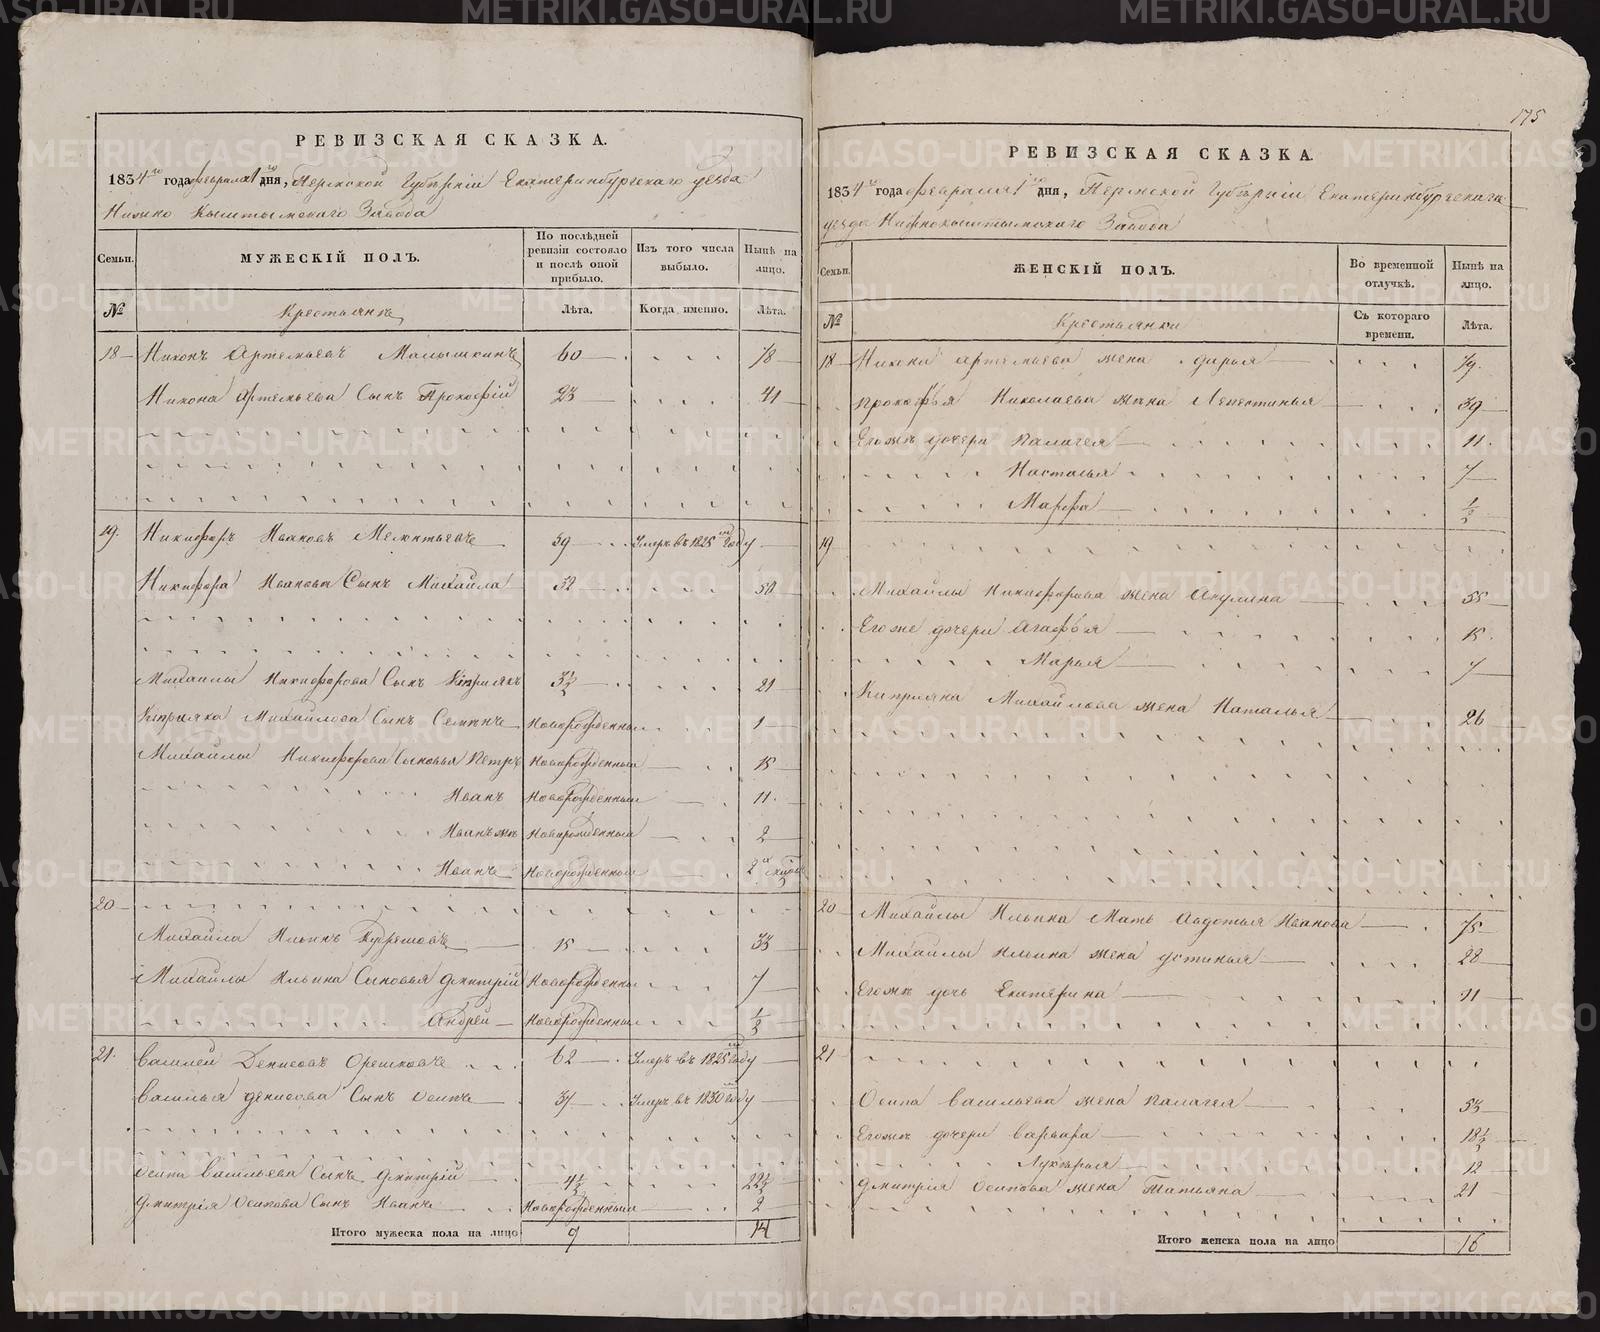 РЕВИЗСКАЯ СКАЗКА.
1834го года февраля 1го дня, Пермской Губернiи Екатеринбургскаго уезда
Нижно Кыштымскаго Завода
Семьи.
МУЖЕСКIЙ ПОЛЪ.
По послѣдней ревизiи состояло и послѣ оной прибыло.
Изъ того числа выбыло.
Нынѣ на лицо.
№
Крестьянъ
Лѣта.
Когда именно.
Лѣта.
18 Никонъ Артемьевъ Малышкинъ 60 78
Никона Артемьева Сынъ Прокофiй 23 41
19. Никифоръ Ивановъ Мелентьевъ 59 Умеръ въ 1825мъ году
Никифора Иванова Сынъ Михайла 32 50
Михайлы Никифорова Сынъ Кипрiянъ 3½ 21
Кипрiяна Михайлова Сынъ Семенъ Новорожденный 1
Михайлы Никифорова Сыновья Петръ Новорожденный 15
Иванъ Новорожденный 11.
Иванъ же Новорожденный 2
Иванъ Новорожденный 2хъ
20
Михайла Ильинъ 15 33
Михайлы Ильина Сыновья Дмитрiй Новорожденный 7
Андрей Новорожденный ½
21. Василей Денисовъ Орешковъ 62 Умеръ въ 1825мъ году
Василья Денисова Сынъ Осипъ 37 Умеръ въ 1830мъ году
Осипа Васильева Сынъ Дмитрiй 4½ 22½
Дмитрiя Осипова Сынъ Иванъ Новорожденный 2
Итого мужеска пола на лицо 9 14
175
РЕВИЗСКАЯ СКАЗКА.
1834го года февраля 1го дня, Пермской Губернiи Екатеринбургскаго
уезда Нижнокыштымскаго Завода
Семьи.
ЖЕНСКIЙ ПОЛЪ.
Во временной отлучкѣ.
Нынѣ на лицо.
№
Крестьянки
Съ котораго времени.
Лѣта.
18 Никона Артемьева жена Дарья 79.
Прокофья Николаева жена Лепестинья 39
Егоже дочери Палагея 11.
Насталья 7
Марфа ½
19
Михайлы Никифорова жена Акулина 55
Егоже дочери Агафья 15.
Марья 7
Кипрiяна Михайлова жена Наталья 26
20 Михайлы Ильина Мать Авдотья Иванова 75
Михайлы Ильина жена Устинья 28
Егоже дочь Екатерина 11
21
Осипа Васильева жена Палагея 53
Егоже дочери Варвара 18½
Лукерья 12
Дмитрiя Осипова жена Татьяна 21
Итого женска пола на лицо 16
METRIKI.GASO-URAL.RU